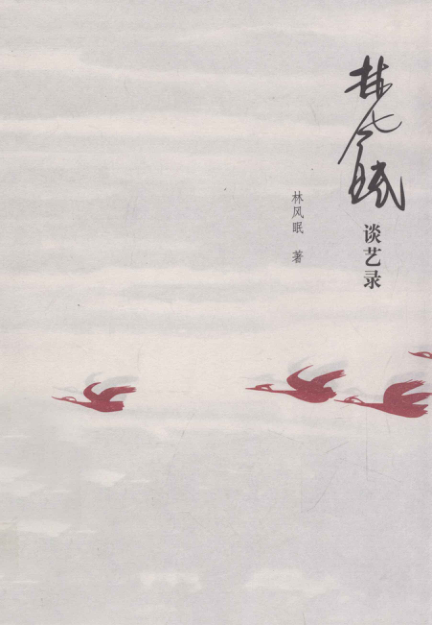 林风眠
谈艺录
林风眠 著